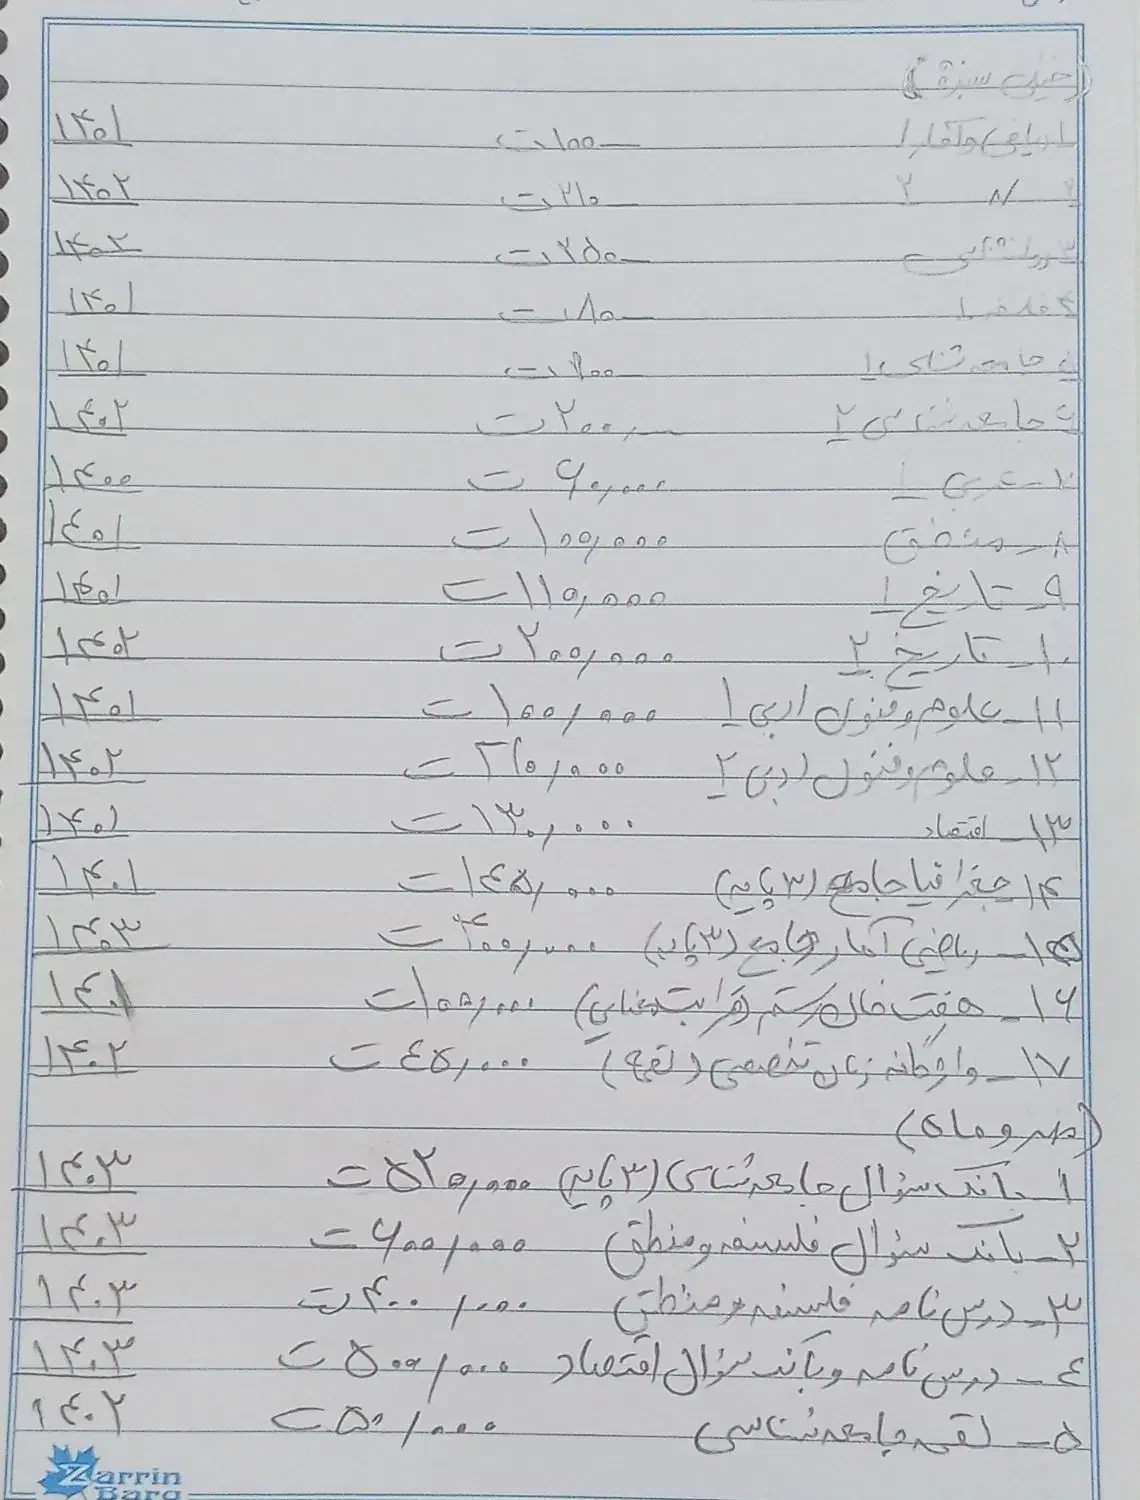 (خیلی سبز)
۱ ریاضی و آمار ۱ ۱۰۰ت ۱۴۰۱
۲ // ۲ ۲۱۰ت ۱۴۰۲
۳ روانشناسی ۲۵۰ت ۱۴۰۲
۴ فلسفه ۱ ۸۰ت ۱۴۰۱
۵ جامعه شناسی ۱ ت ۱۴۰۱
۶ جامعه شناسی ۲ ۲۰۰,۰۰۰ت ۱۴۰۲
۷- عربی ۱ ۶۰,۰۰۰ ت ۱۴۰۰
۸- منطق ۱۰۰,۰۰۰ ت ۱۴۰۱
۹- تاریخ ۱ ۱۱۰,۰۰۰ت ۱۴۰۱
۱۰- تاریخ ۲ ۲۰۰,۰۰۰ت ۱۴۰۲
۱۱- علوم و فنون ادبی ۱ ۱۰۰,۰۰۰ ت ۱۴۰۱
۱۲- علوم و فنون ادبی ۲ ۲۱۰,۰۰۰ ت ۱۴۰۲
۱۳- اقتصاد ۱۳۰,۰۰۰ت ۱۴۰۱
۱۴- جغرافیا جامع (۳ پایه) ۱۴۵,۰۰۰ت ۱۴۰۱
۱۵- ریاضی آمار جامع (۳ پایه) ۳۰۰,۰۰۰ ت ۱۴۰۳
۱۶- هفت خان رستم (قرابت معنایی) ۱۰۵,۰۰۰ت ۱۴۰۱
۱۷- واژگانه زبان تخصصی (لقمه) ۴۵,۰۰۰ ت ۱۴۰۲
(مهر و ماه)
۱- بانک سؤال جامعه شناسی (۳ پایه) ۵۲۰,۰۰۰ ت ۱۴۰۳
۲- بانک سؤال فلسفه و منطق ۶۰۰,۰۰۰ ت ۱۴۰۳
۳- درس نامه فلسفه و منطق ۴۰۰,۰۰۰ ت ۱۴۰۳
۴- درس نامه و بانک سؤال اقتصاد ۵۰۰,۰۰۰ ت ۱۴۰۳
۵- لقمه جامعه شناسی ۵۰,۰۰۰ت ۱۴۰۲
Zarrin
Barg